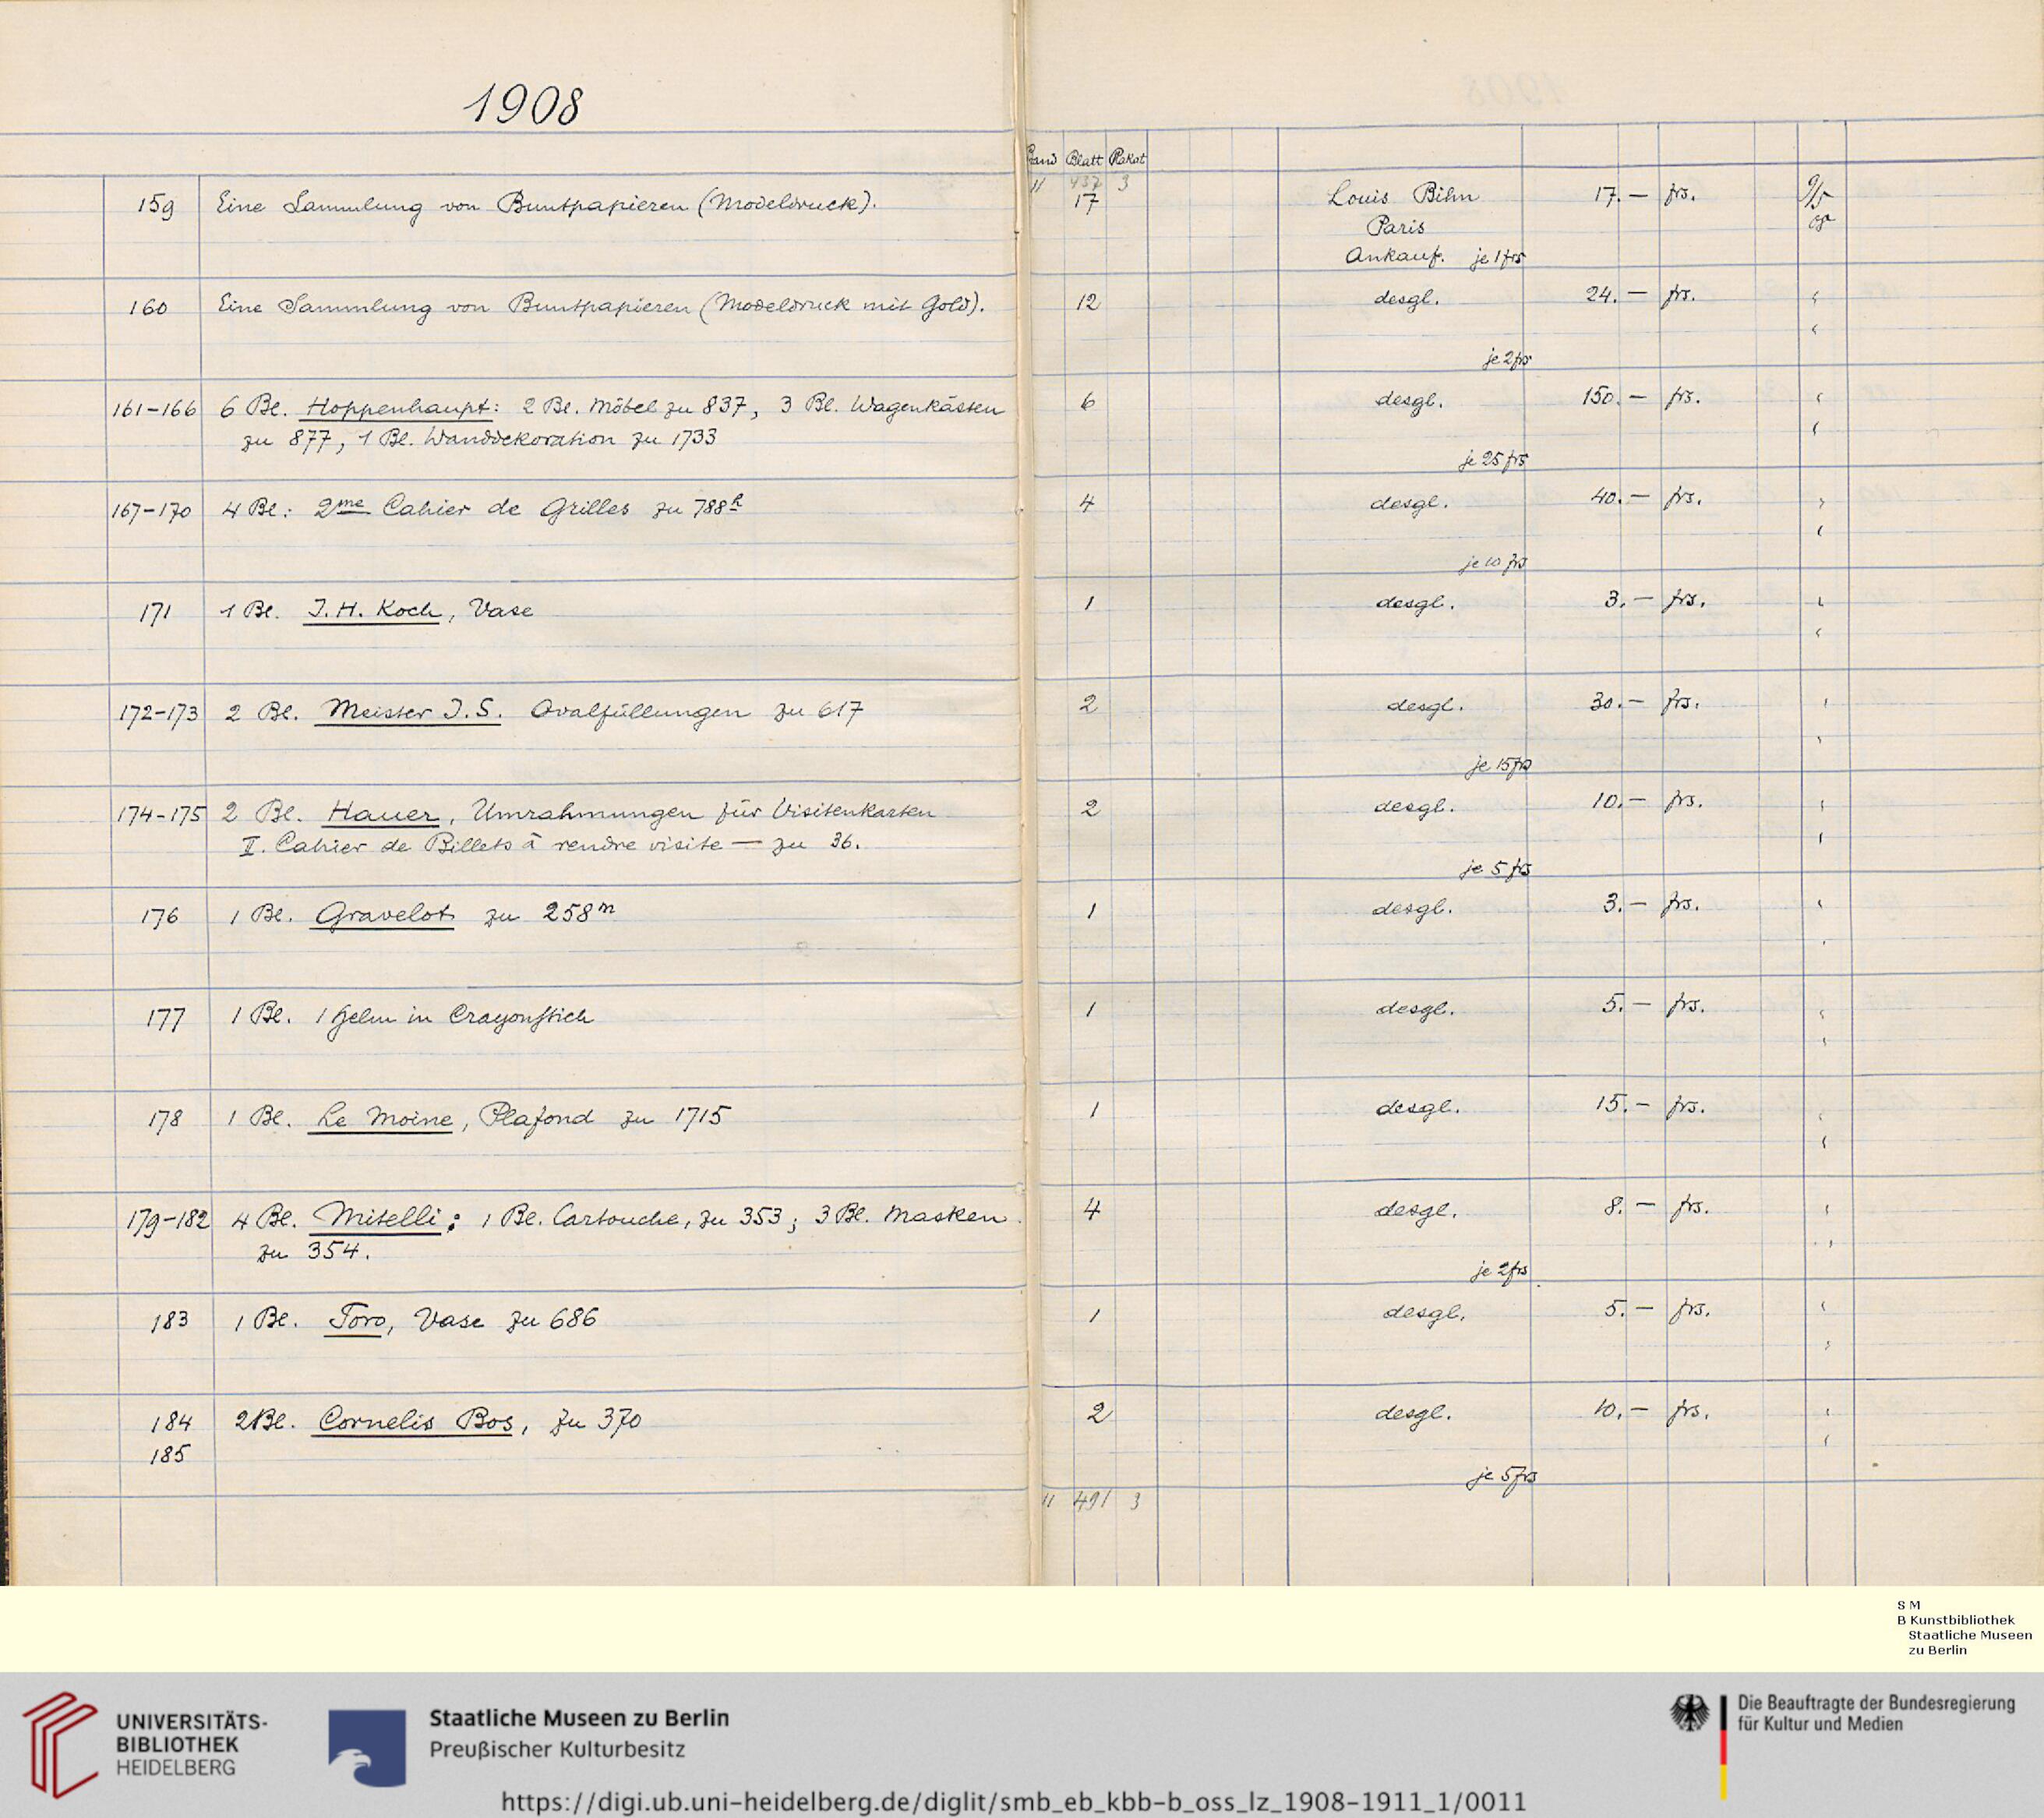 1908
Band Blatt Paket
11 437 3
159 Eine Sammlung von Buntpapieren (Modeldruck). 17 Louis Bihn 17.— frs. 9/5
Paris 08
Ankauf. je 1 frs
160 Eine Sammlung von Buntpapieren (Modeldruck mit Gold). 12 desgl. 24.— frs. "
"
je 2 frs
161-166 6 Bl. Hoppenhaupt: 2 Bl. Möbel zu 837, 3 Bl. Wagenkästen 6 desgl. 150.— frs. "
zu 877, 1 Bl. Wanddekoration zu 1733
je 25 frs
167-170 4 Bl: 2me Cahier de Grilles zu 788h 4 desgl. 40.— frs. "
je 10 frs
171 1 Bl. J. H. Koch, Vase 1 desgl. 3.— frs. "
172-173 2 Bl. Meister J. S. Ovalfüllungen zu 617 2 desgl. 30.— frs. "
je 15 frs
174-175 2 Bl. Hauer, Umrahmungen für Visitenkarten 2 desgl. 10.— frs. "
II. Cahier de Billets à rendre visite — zu 36.
je 5 frs
176 1 Bl. Gravelot zu 258m 1 desgl. 3.— frs. "
177 1 Bl. 1 Helm in Crayonstich 1 desgl. 5.— frs. "
178 1 Bl. Le Moine, Plafond zu 1715 1 desgl. 15.— frs. "
179-182 4 Bl. Mitelli: 1 Bl. Cartouche, zu 353; 3 Bl. Masken 4 desgl. 8.— frs. "
zu 354.
je 2 frs
183 1 Bl. Toro, Vase zu 686 1 desgl. 5.— frs. "
184 2 Bl. Cornelis Bos, zu 370 2 desgl. 10.— frs. "
185
je 5 frs
11 491 3
S M
B Kunstbibliothek
Staatliche Museen
zu Berlin
UNIVERSITÄTS-
BIBLIOTHEK
HEIDELBERG
Staatliche Museen zu Berlin
Preußischer Kulturbesitz
Die Beauftragte der Bundesregierung
für Kultur und Medien
https://digi.ub.uni-heidelberg.de/diglit/smb_eb_kbb-b_oss_lz_1908-1911_1/0011